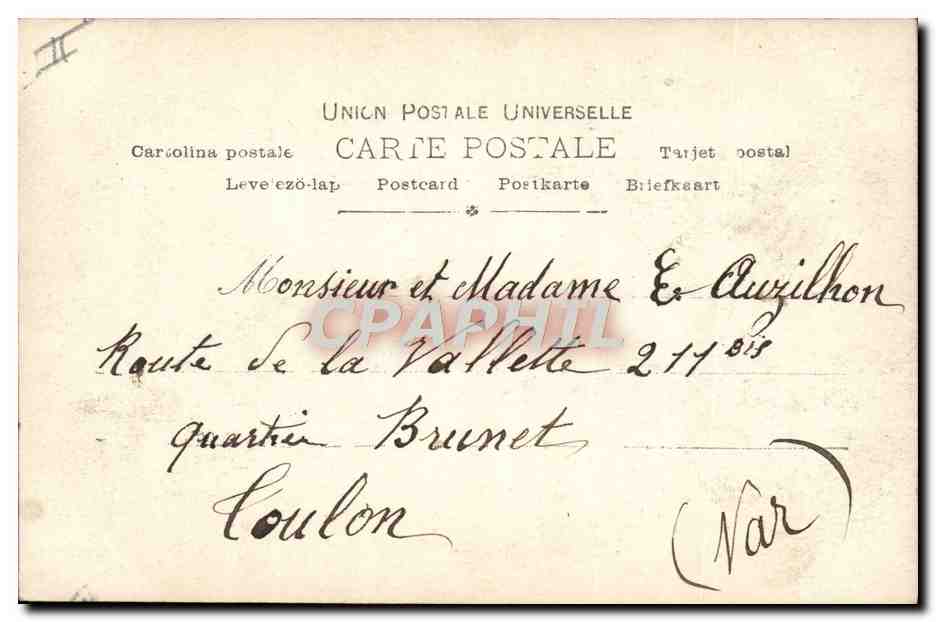 II
UNION POSTALE UNIVERSELLE
Cartolina postale CARTE POSTALE Tarjet postal
Levelező-lap Postcard Postkarte Briefkaart
Monsieur et Madame E. Auzilhon
CPAPHIL
Route de la Vallette 211 Bis
quartier Brunet
Toulon (Var)